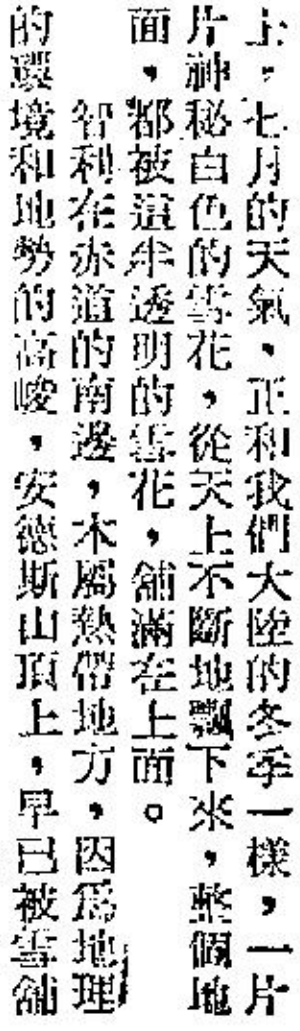 上，七月的天氣，正和我們大陸的冬季一樣，一片
片神秘白色的雪花，從天上不斷地飄下來，整個地
面，都被這半透明的雪花，舖滿在上面。
智利在赤道的南邊，木屬熱帶地方，因爲地理
的環境和地勢的高峻，安德斯山頂上，早已被雪舖